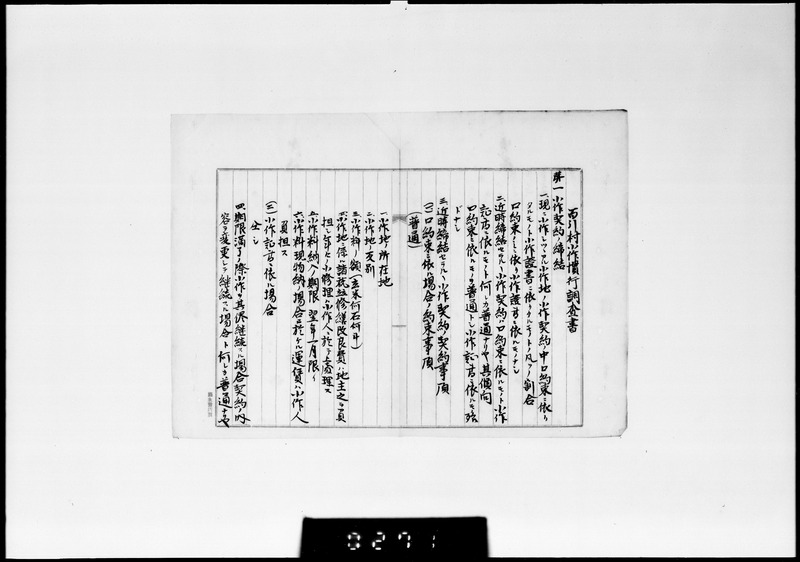 西川村小作慣行調査書
第一 小作契約ノ締結
一、現ニ小作シツヽアル小作地ノ小作契約ノ中口約束ニ依リ
タルモノト小作證書ニ依リタルモノトノ凡ソノ割合
口約束ノミニ依リ小作證書ニ依ルモノナシ
二、近時締結セラルヽ小作契約ハ口約束ニ依ルモノト小作
証書ニ依ルモノト何レカ普通ナリヤ其傾向
口約束ニ依ルモノヲ普通トシ小作証書ニ依ルモノ殆
ドナシ
三、近時締結セラルヽ小作契約ノ契約事項
(一)口約束ニ依ル場合ノ約束事項
(普通)
一、小作地ノ所在地
二、小作地ノ反別
三、小作料ノ額(玄米何石何斗)
四、小作地ニ係ル諸税並修繕改良費ハ地主之ヲ負
担シ年々ノ小修理ハ小作人ニ於テ処理ス
五、小作料納入ノ期限 翌年一月限リ
六、小作料現物納ノ場合ニ於ケル運賃ハ小作人
負担ス
(二)小作証書ニ依ル場合
ナシ
四、期限満了ノ際小作ヲ其侭継続スル場合契約ノ内
容ヲ変更シテ継続スル場合ト何レカ普通ナルヤ
0271